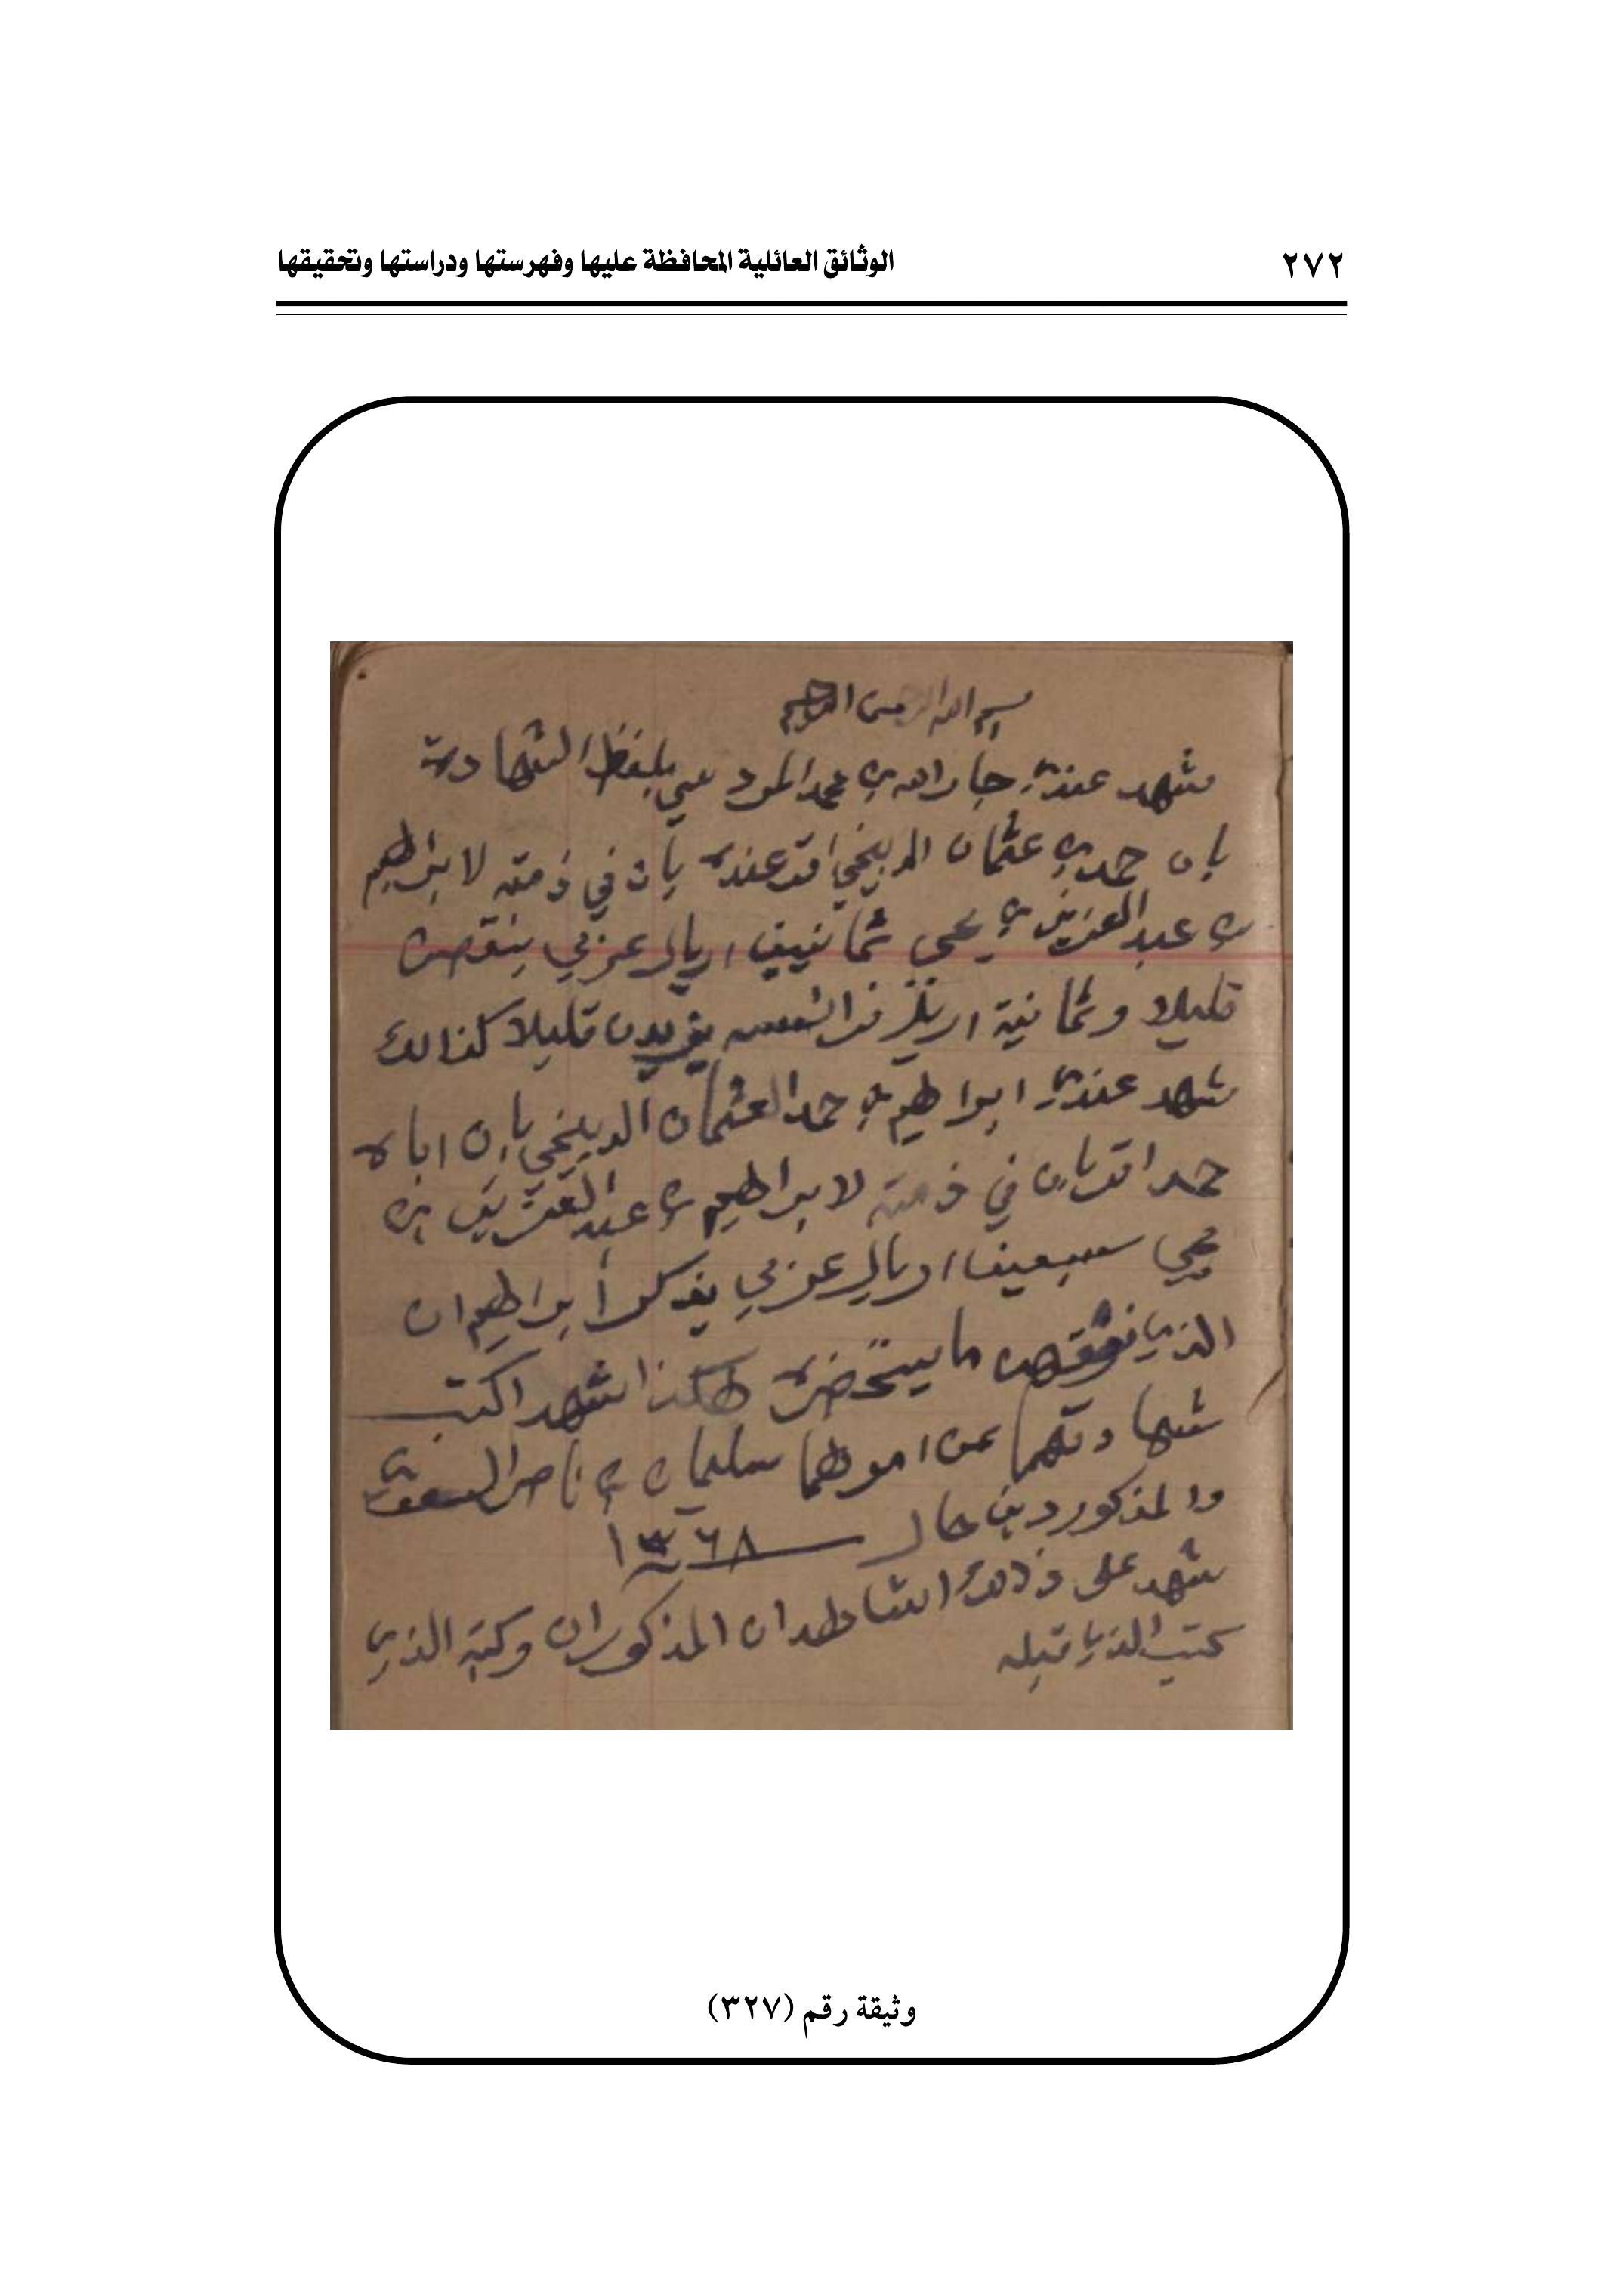 ٢٧٢
الوثائق العائلية المحافظة عليها وفهرستها ودراستها وتحقيقها
بسم الله الرحمن الرحيم
شهد عندي جار الله بن محمد بلفظ الشهادة
بان حمد بن عثمان الدبيخي اقر عنده بان في ذمته لابراهيم
بن عبد العزيز بن يحي ثمانين اريال عربي ينقصن
قليلا وثمانية اريل يزيدن قليلا كذالك
شهد عندي ابراهيم بن حمد العثمان الدبيخي بان اباه
حمد اقر بان في ذمته لابراهيم بن عبد العزيز بن
يحي سبعين اريال عربي يذكر ابراهيم ان
الذي نقصن ما يستحضره هكذا شهد اكتب
شهادتهما عن امرهما سليمان بن ناصر
والمذكور دين حال ١٣٦٨
شهد على ذالك الشاهدان المذكوران وكتبه الذي
كتب الذي قبله
وثيقة رقم (٣٢٧)